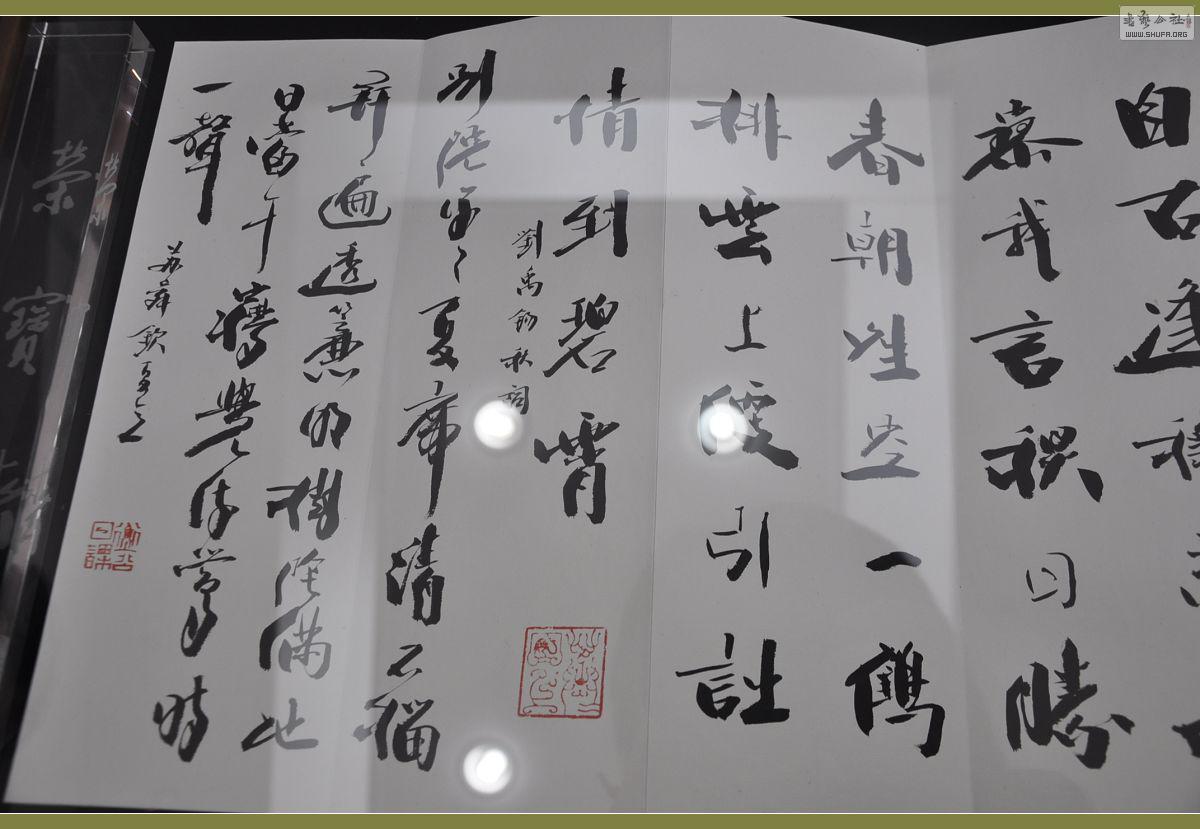 自古逢秋
寥我言秋日勝
春朝晴空一鶴
排雲上便引詩
情到碧霄
劉禹錫秋詞
別院深々夏席清石榴
開遍透簾明樹陰滿地
日當午夢覺流鶯時
一聲
蘇舜欽夏意
榮寶齋
书艺公社
WWW.SHUFA.ORG